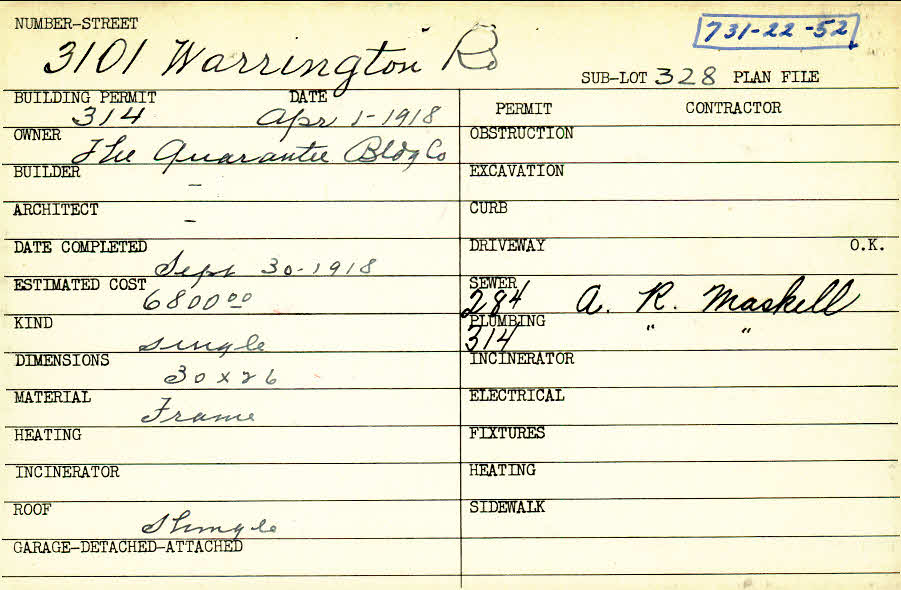 NUMBER-STREET
731-22-52
3101 Warrington Rd
SUB-LOT 328 PLAN FILE
BUILDING PERMIT DATE
314 Apr 1-1918
OWNER
The Guarantee Bldg Co
BUILDER
-
ARCHITECT
-
DATE COMPLETED
Sept 30-1918
ESTIMATED COST
6800 00
KIND
single
DIMENSIONS
30 x 26
MATERIAL
Frame
HEATING
INCINERATOR
ROOF
Shingle
GARAGE-DETACHED-ATTACHED
PERMIT CONTRACTOR
OBSTRUCTION
EXCAVATION
CURB
DRIVEWAY O.K.
SEWER
284 A. R. Maskell
PLUMBING
314 " "
INCINERATOR
ELECTRICAL
FIXTURES
HEATING
SIDEWALK